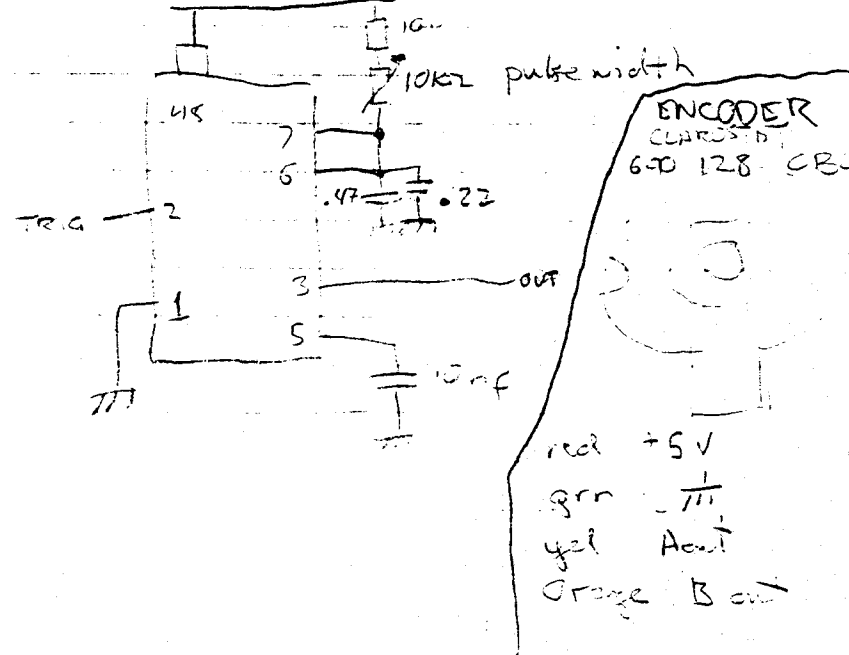 10KΩ pulse width
48
7
6
.47
.22
TRIG
2
3
OUT
1
5
10nf
ENCODER
CLAROSTAT
600 128 CBL
red +5V
grn
yel Aout
Orange B out